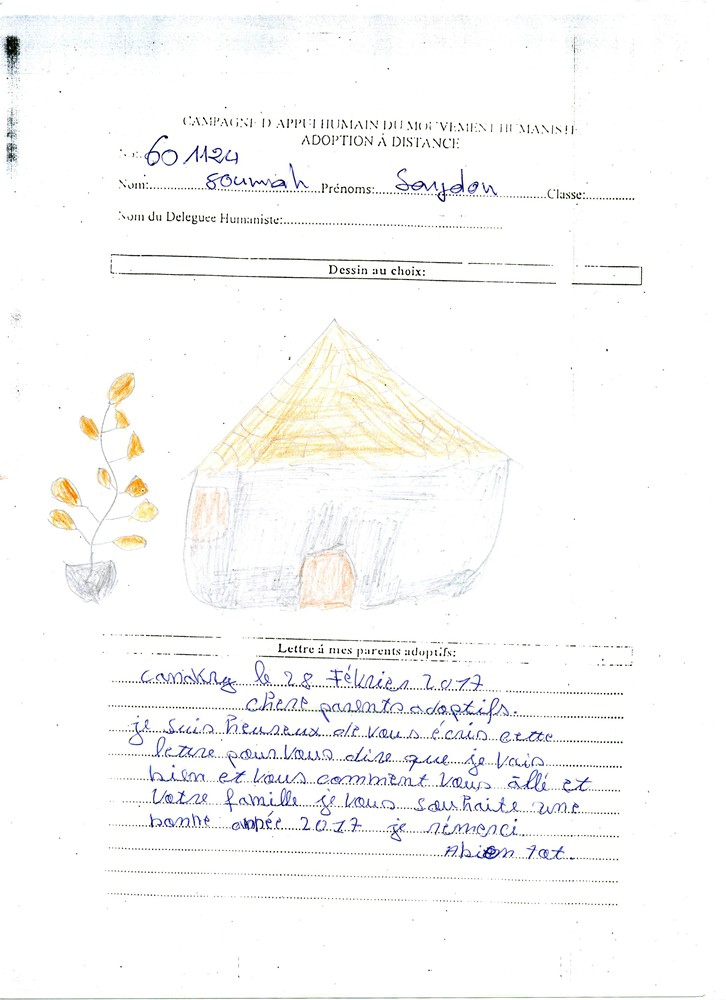 CAMPAGNE D'APPUI HUMAIN DU MOUVEMENT HUMANISTE
ADOPTION À DISTANCE
No: 601124
Nom: Soumah Prénoms: Saydon Classe:
Nom du Deleguee Humaniste:
Dessin au choix:
Lettre á mes parents adoptifs:
Canakry le 28 Février 2017
chere parents adoptifs.
je suis heureux de vous écris cette
lettre pour vous dire que je vais
bien et vous comment vous âllé et
votre famille je vous souhaite une
bonne année 2017 je rémerci
Abien tot.